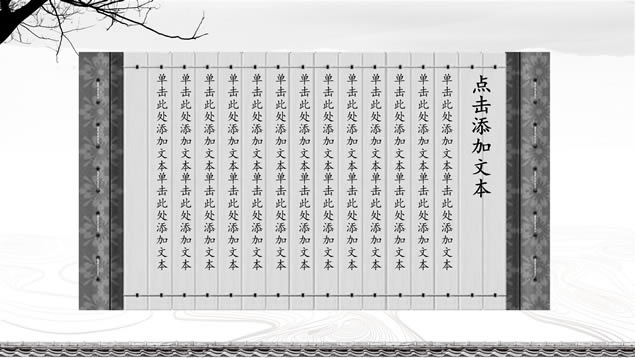 点击添加文本
单击此处添加文本单击此处添加文本
单击此处添加文本单击此处添加文本
单击此处添加文本单击此处添加文本
单击此处添加文本单击此处添加文本
单击此处添加文本单击此处添加文本
单击此处添加文本单击此处添加文本
单击此处添加文本单击此处添加文本
单击此处添加文本单击此处添加文本
单击此处添加文本单击此处添加文本
单击此处添加文本单击此处添加文本
单击此处添加文本单击此处添加文本
单击此处添加文本单击此处添加文本
单击此处添加文本单击此处添加文本